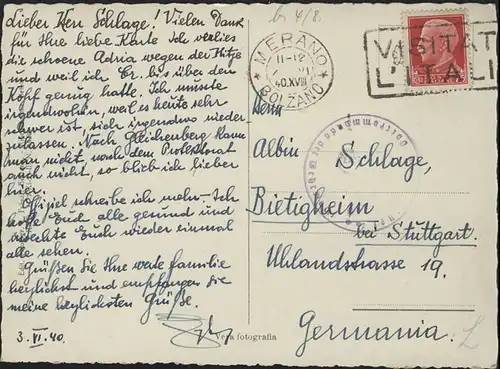 Lieber Herr Schlage! Vielen Dank
für Ihre liebe Karte. Ich verliess
die schoene Adria wegen der Hitze
und weil ich Er. bis über den
Kopf genug hatte. Ich musste
irgendwohin, weil es heute sehr
schwer ist, sich irgendwo nieder
zulassen. Nach Gleichenberg kann
man nicht, nach dem Protektorat
auch nicht, so blieb ich lieber
hier.
Offiziel schreibe ich mehr. Ich
hoffe Euch alle gesund und
möchte Euch wieder einmal
alle sehen.
Grüßen Sie Ihre werte Familie
herzlichst und empfangen Sie
meine herzlichsten Grüße.
3. VI. 40.
Vera fotografia
MERANO
11-12
40.XVIII
BOLZANO
VISITATE
L'ITALIA
Herrn
Albin Schlage,
Bietigheim
bei Stuttgart.
Uhlandstrasse 19.
Germania.